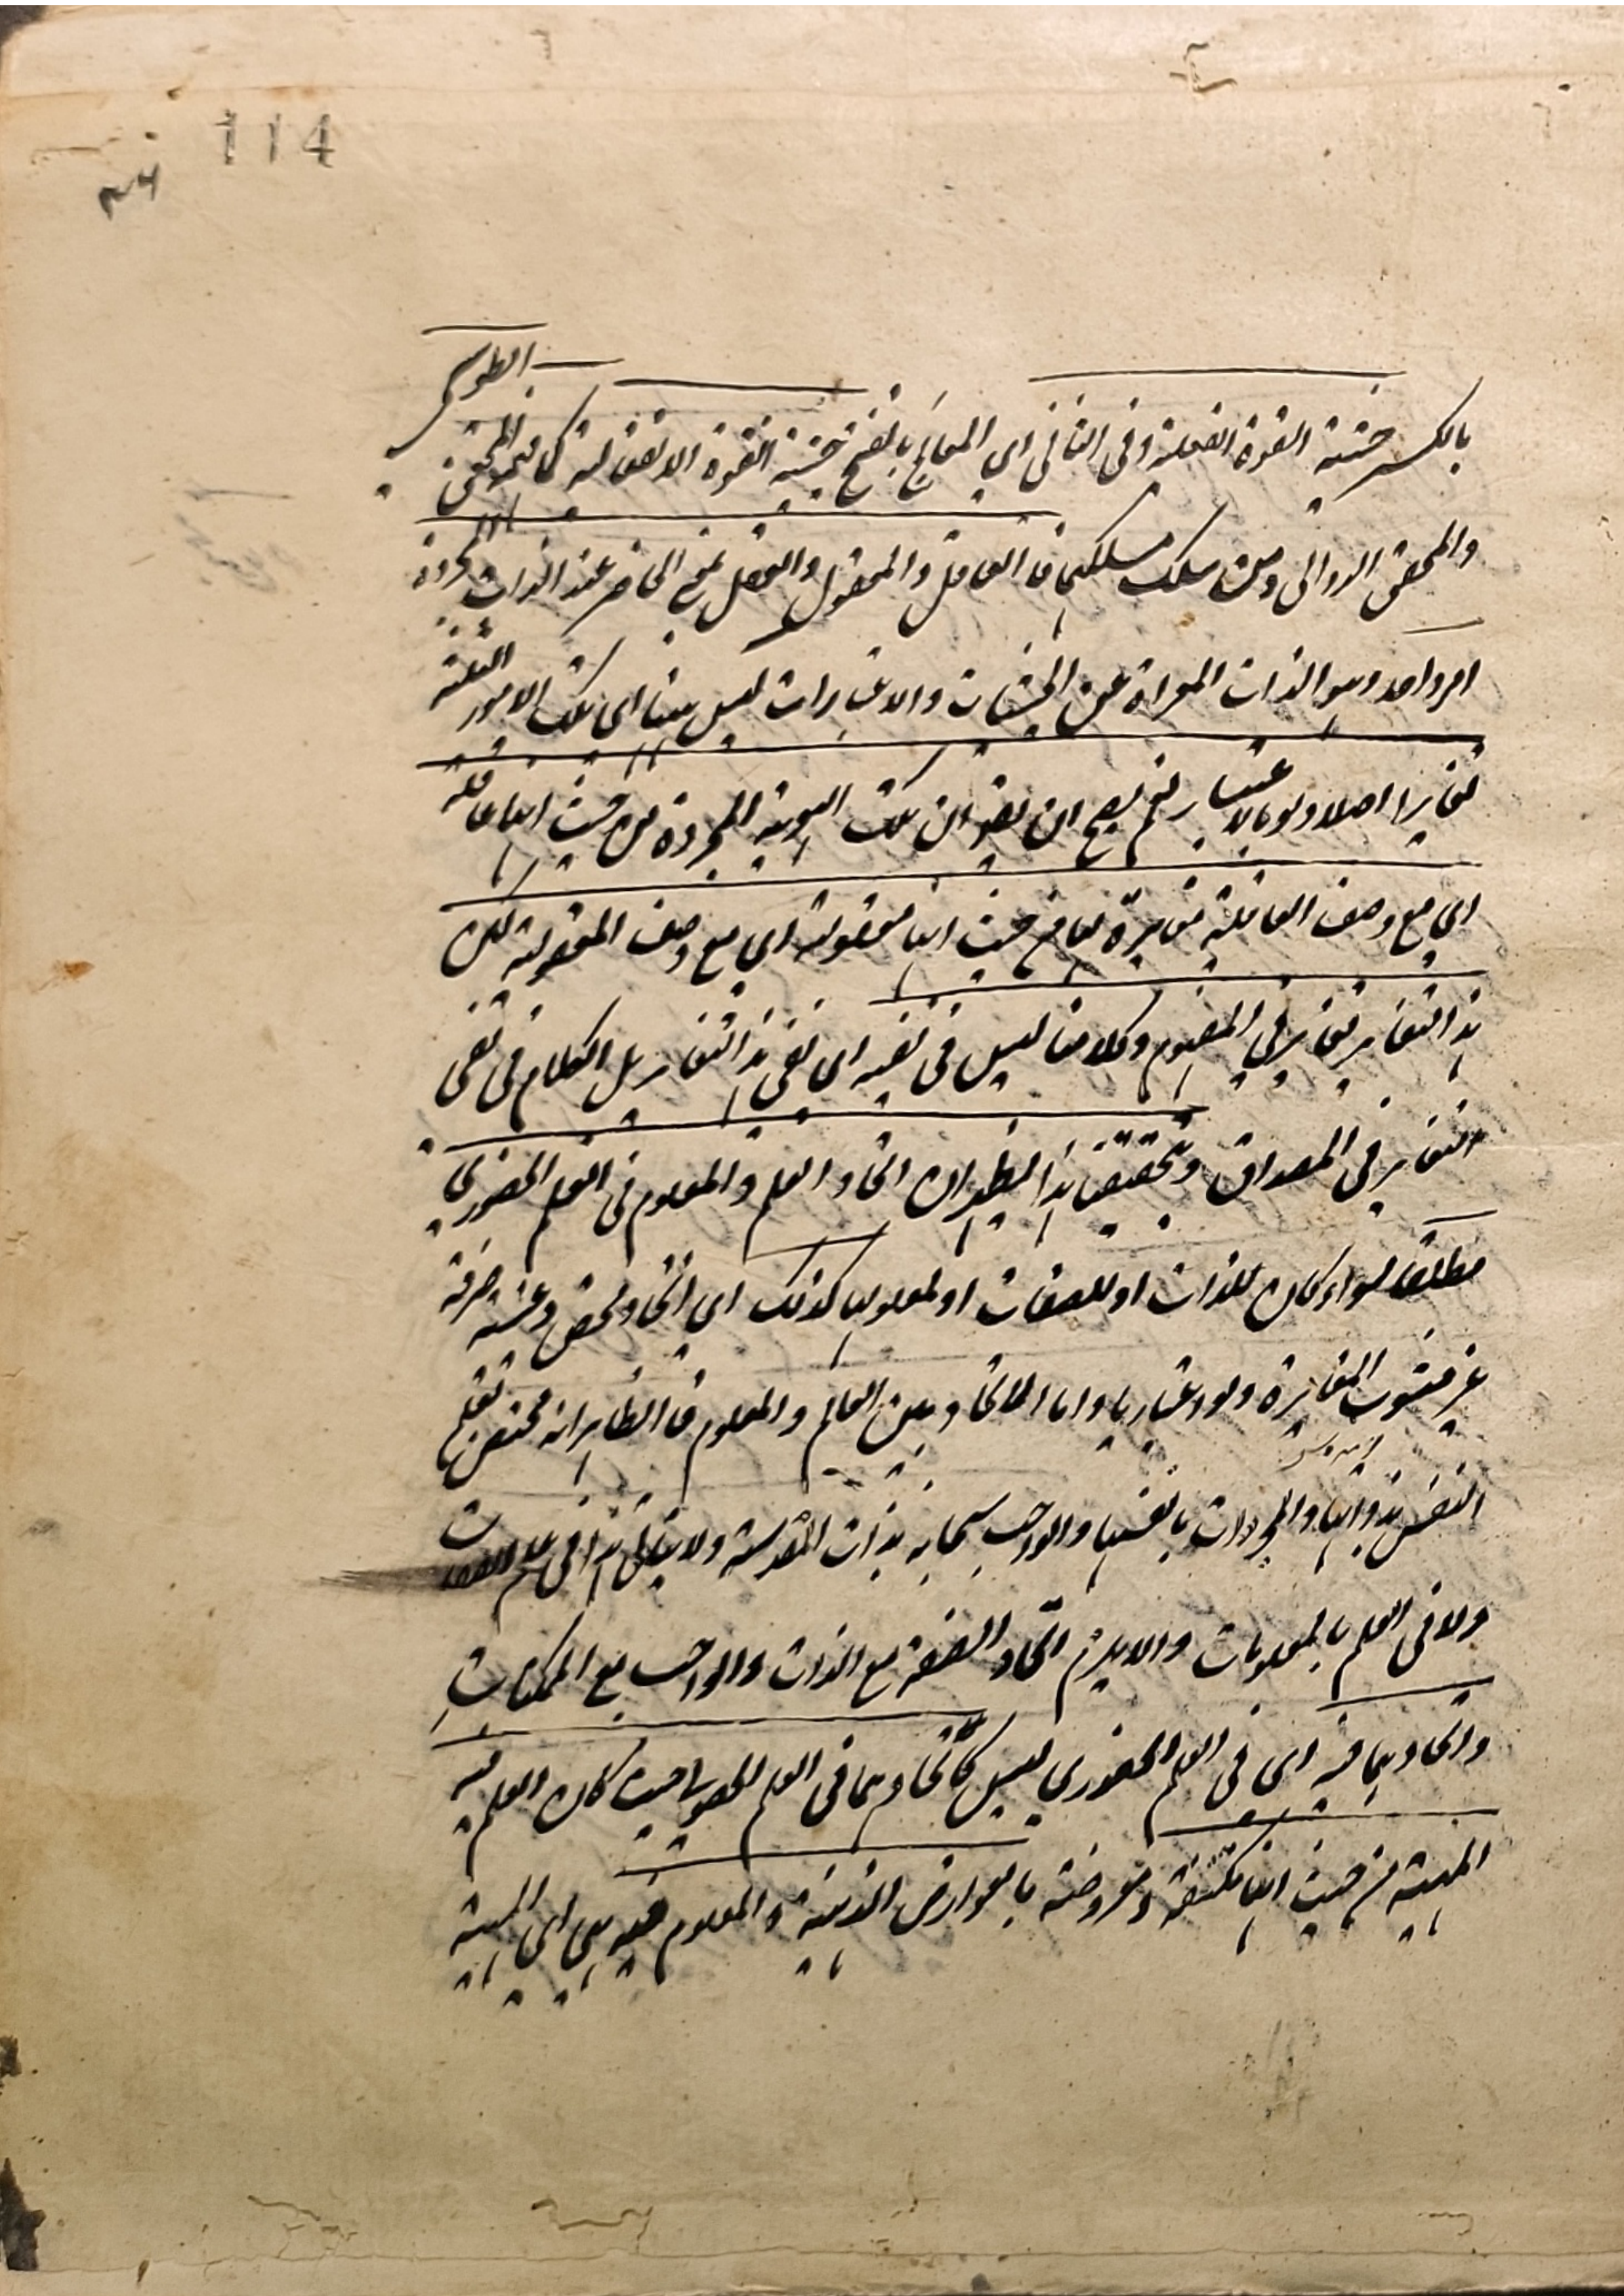 114
بالكسر حيثية القوة الفعلية وفى الثانى اي المعالَج بالفتح حيثية القوة الانفعالية كما فهمه المحقق الطوسى
والمحقق الدوانى ومن سلك مسلكهما فالعاقل والمعقول والعقل بمعنى الحاضر عند الذات المجردة
امر واحد وهو الذات المعراة عن الحيثيات والاعتبارات ليس بينها اى تلك الامور الثلثة
تغايرا اصلا ولو بالاعتبار نعم يصح ان يقو ان تلك الهوية المجردة من حيث انها عاقلة
اي مع وصف العاقلية مغايرة لها من حيث انها معقولة اي مع وصف المعقولية لكن
هذا التغاير تغاير في المفهوم وكلامنا ليس فى نفيه اى نفى هذا التغاير بل الكلام فى نفى
التغاير فى المصداق وتحقيق هذا يظهر ان اتحاد العلم والمعلوم فى العلم الحضوري
مطلقا سواء كان للذات او للصفات او لمعلولها كذلك اى اتحاد محض وعينية صرفة
غير مشوب المغايرة ولو اعتباريا واما الاتحاد بين العالم والمعلوم فالظاهر انه مختص بعلم
النفس بذواتها والمجردات بانفسها والواجب سبحانه بذات المقدسة ولا يتأتى هذا فى علم الصفات
ولا فى العلم بالمعلولات والا يلزم اتحاد الصفة مع الذات والواجب مع الممكنات
واتحادهما فيه اى فى العلم الحضوري ليس كاتحادهما فى العلم الحصولى حيث كان العلم فيه
المهية من حيث انها مكتنفة ومعروضة بالعوارض الذهنية والمعلوم فيه هي اي المهية